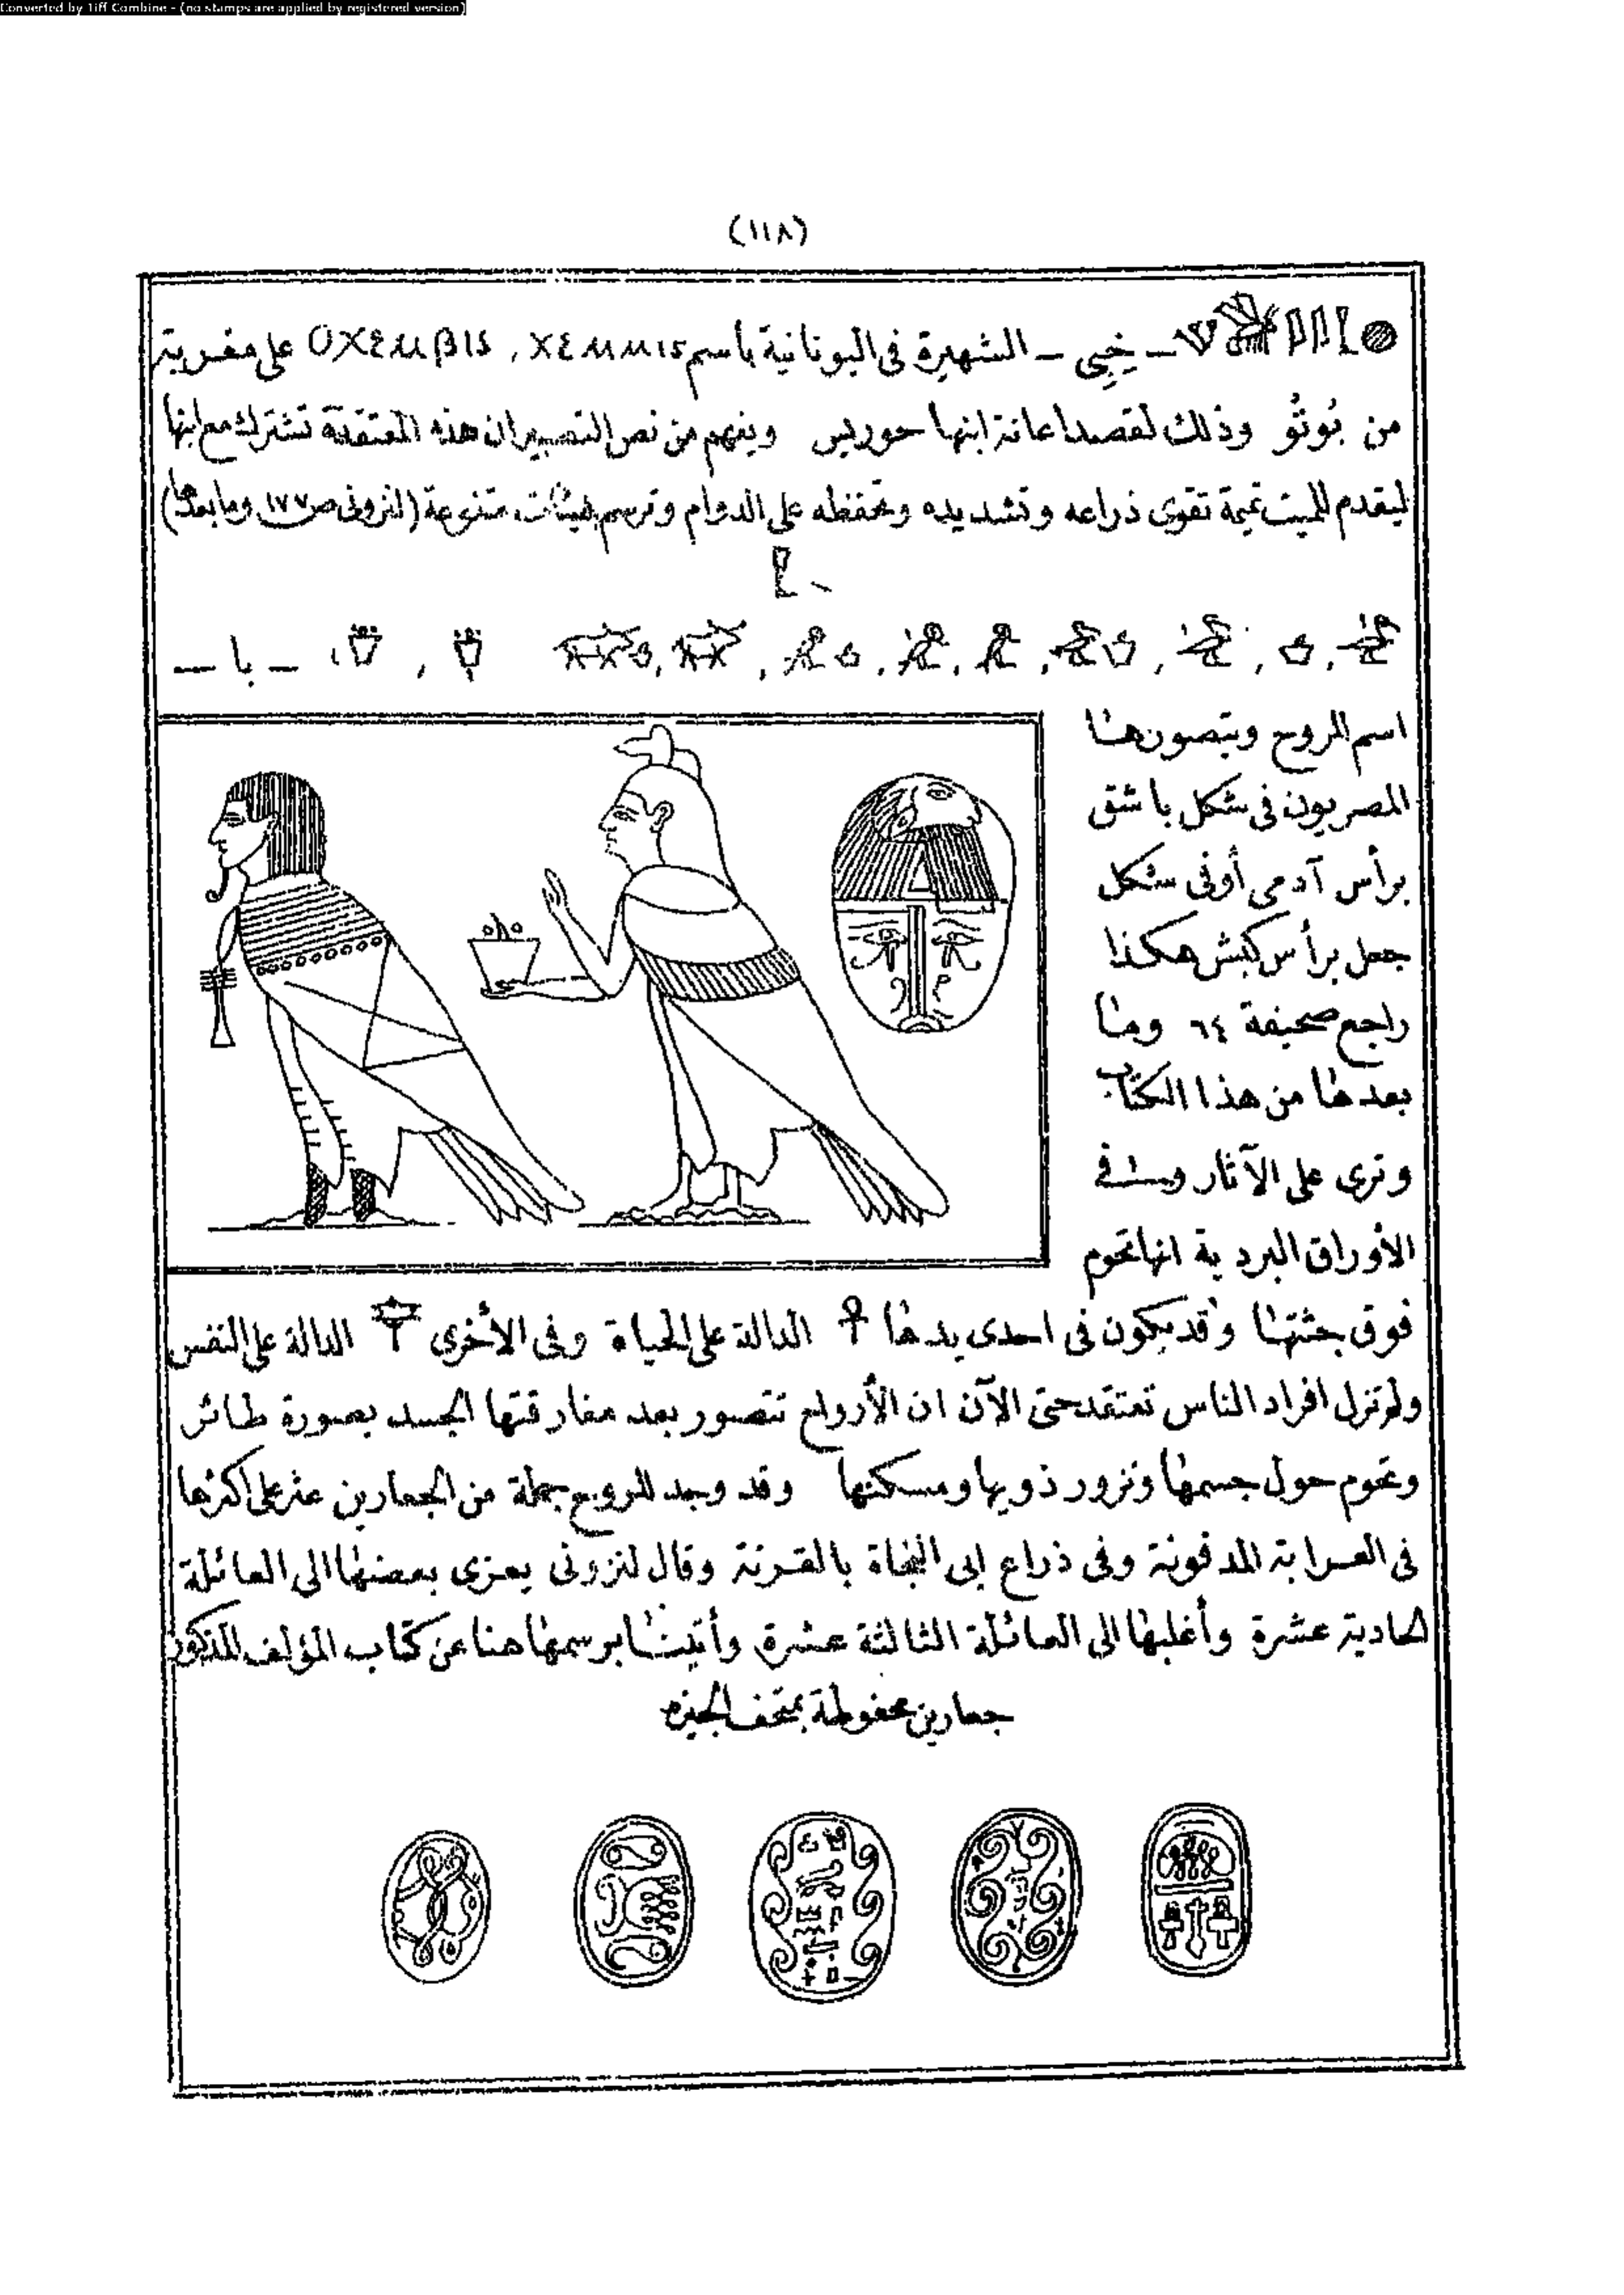 Converted by Tiff Combine - (no stamps are applied by registered version)
(١١٨)
ـ خِبِى ـ الشهيرة فى اليونانية باسم ΧΕΜΜΙS , ΟΧΕΜΒΙS على مقربة
من بُوتُو وذلك لقصد اعانة ابنها حوريس ويفهم من نص التصبير ان هذه المعتقدة تشترك مع ابنها
ليقدم للميت تميمة تقوى ذراعه وتشد يده وتحفظه على الدوام وترسم بهيئات متنوعة (لنزونى ص ١٧٧ وما بعدها)
ـ با ـ
اسم للروح ويتصورها
المصريون فى شكل باشق
برأس آدمى أو فى شكل
جعل برأس كبش هكذا
راجع صحيفة ٦٤ وما
بعدها من هذا الكتاب
وترى على الآثار وفى
الأوراق البردية انها تحوم
فوق جثتها وقد يكون فى احدى يدها ☥ الدالة على الحياة وفى الأخرى الدالة على النفس
ولم تزل افراد الناس تعتقد حتى الآن ان الأرواح تتصور بعد مفارقتها الجسد بصورة طائر
وتحوم حول جسمها وتزور ذويها ومسكنها وقد وجد للروح جملة من الجعارين عثر على اكثرها
فى العرابة المدفونة وفى ذراع ابى النجاة بالقرنة وقال لنزونى يعزى بعضها الى العائلة
الحادية عشرة وأغلبها الى العائلة الثالثة عشرة وأتينا برسمها هنا عن كتاب المؤلف المذكور
جعارين محفوظة بمتحف الجيزه